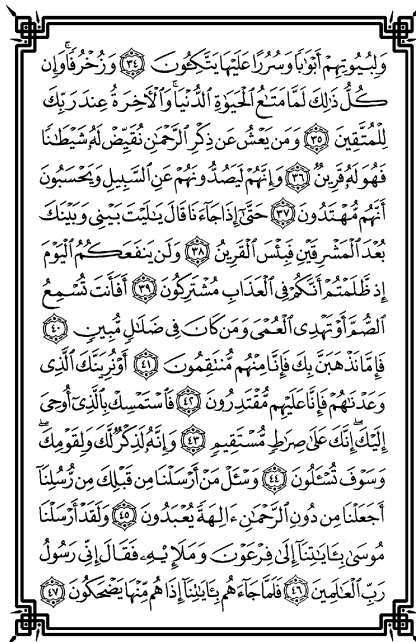 وَلِبُيُوتِهِمْ أَبْوَٰبًا وَسُرُرًا عَلَيْهَا يَتَّكِـُٔونَ ٣٤ وَزُخْرُفًا ۚ وَإِن
كُلُّ ذَٰلِكَ لَمَّا مَتَـٰعُ الْحَيَوٰةِ الدُّنْيَا ۚ وَالْـَٔاخِرَةُ عِندَ رَبِّكَ
لِلْمُتَّقِينَ ٣٥ وَمَن يَعْشُ عَن ذِكْرِ الرَّحْمَـٰنِ نُقَيِّضْ لَهُۥ شَيْطَـٰنًا
فَهُوَ لَهُۥ قَرِينٌ ٣٦ وَإِنَّهُمْ لَيَصُدُّونَهُمْ عَنِ السَّبِيلِ وَيَحْسَبُونَ
أَنَّهُم مُّهْتَدُونَ ٣٧ حَتَّىٰٓ إِذَا جَآءَنَا قَالَ يَـٰلَيْتَ بَيْنِى وَبَيْنَكَ
بُعْدَ الْمَشْرِقَيْنِ فَبِئْسَ الْقَرِينُ ٣٨ وَلَن يَنفَعَكُمُ الْيَوْمَ
إِذ ظَّلَمْتُمْ أَنَّكُمْ فِى الْعَذَابِ مُشْتَرِكُونَ ٣٩ أَفَأَنتَ تُسْمِعُ
الصُّمَّ أَوْ تَهْدِى الْعُمْىَ وَمَن كَانَ فِى ضَلَـٰلٍ مُّبِينٍ ٤٠
فَإِمَّا نَذْهَبَنَّ بِكَ فَإِنَّا مِنْهُم مُّنتَقِمُونَ ٤١ أَوْ نُرِيَنَّكَ الَّذِى
وَعَدْنَـٰهُمْ فَإِنَّا عَلَيْهِم مُّقْتَدِرُونَ ٤٢ فَاسْتَمْسِكْ بِالَّذِىٓ أُوحِىَ
إِلَيْكَ ۖ إِنَّكَ عَلَىٰ صِرَٰطٍ مُّسْتَقِيمٍ ٤٣ وَإِنَّهُۥ لَذِكْرٌ لَّكَ وَلِقَوْمِكَ ۖ
وَسَوْفَ تُسْـَٔلُونَ ٤٤ وَسْـَٔلْ مَنْ أَرْسَلْنَا مِن قَبْلِكَ مِن رُّسُلِنَآ
أَجَعَلْنَا مِن دُونِ الرَّحْمَـٰنِ ءَالِهَةً يُعْبَدُونَ ٤٥ وَلَقَدْ أَرْسَلْنَا
مُوسَىٰ بِـَٔايَـٰتِنَآ إِلَىٰ فِرْعَوْنَ وَمَلَإِيْهِۦ فَقَالَ إِنِّى رَسُولُ
رَبِّ الْعَـٰلَمِينَ ٤٦ فَلَمَّا جَآءَهُم بِـَٔايَـٰتِنَآ إِذَا هُم مِّنْهَا يَضْحَكُونَ ٤٧